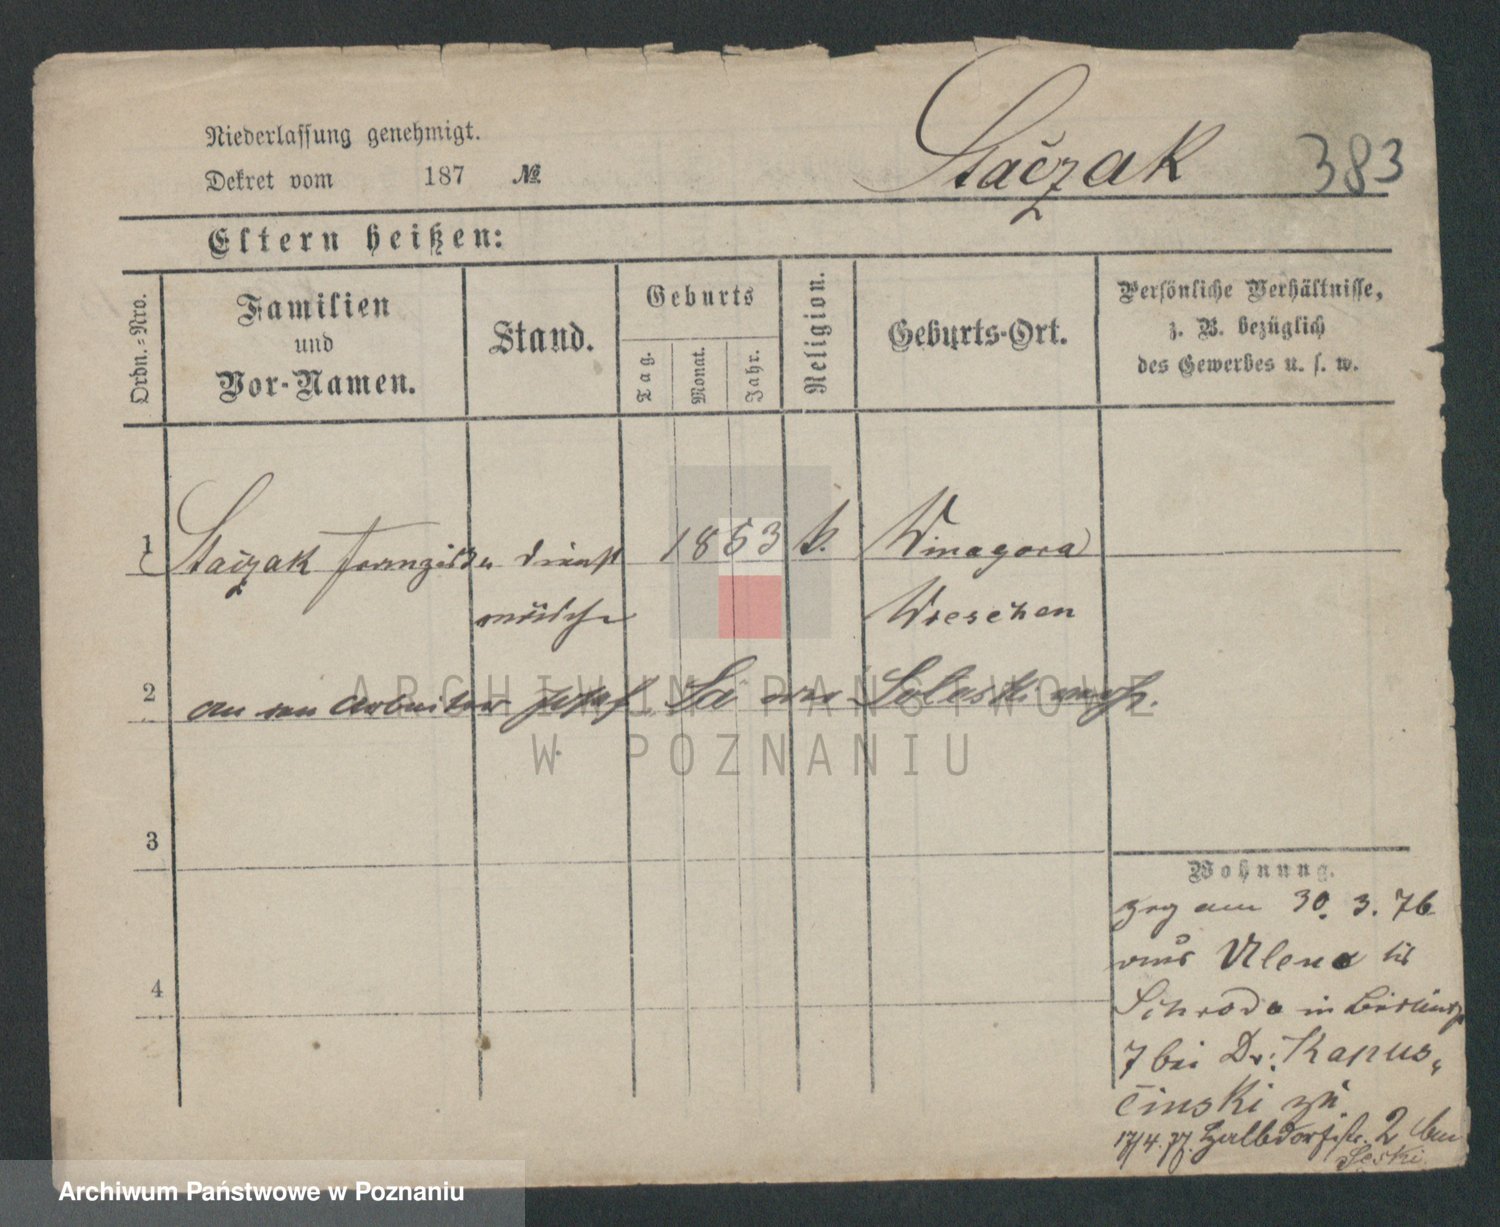 Niederlassung genehmigt.
Dekret vom 187 №
Staczak 383
Eltern heißen:
Ordn.-Nro.
Familien
und
Vor-Namen.
Stand.
Geburts
Tag.
Monat.
Jahr.
Religion.
Geburts-Ort.
Persönliche Verhältnisse,
z. B. bezüglich
des Gewerbes u. s. w.
1 Staczak Franziska dienst 1853 k. Winagora
mädchen Wreschen
2 arbeiter Josef
3
4
Wohnung.
zog am 30. 3. 76
aus Ulena
Schroda in
7 bei Dr. Kapus-
cinski zu
17/4. 77. Halbdorfstr. 2 bei
ARCHIWUM PAŃSTWOWE
W POZNANIU
Archiwum Państwowe w Poznaniu